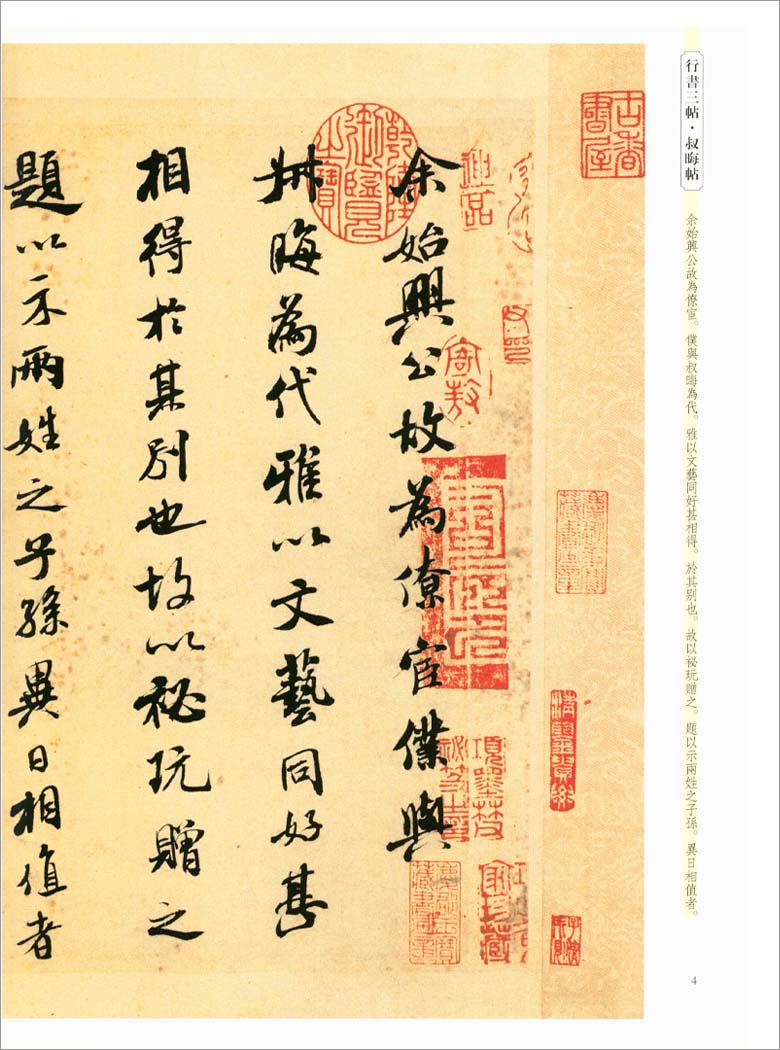 行書三帖・叔晦帖
余始興公故為僚宦。僕與叔晦為代。雅以文藝同好甚相得。於其别也。故以祕玩贈之。題以示兩姓之子孫。異日相值者。
古香書屋
乾隆御覽之寶
余始興公故為僚宦僕與
叔晦為代雅以文藝同好甚
相得於其别也故以祕玩贈之
題以示兩姓之子孫異日相值者
4